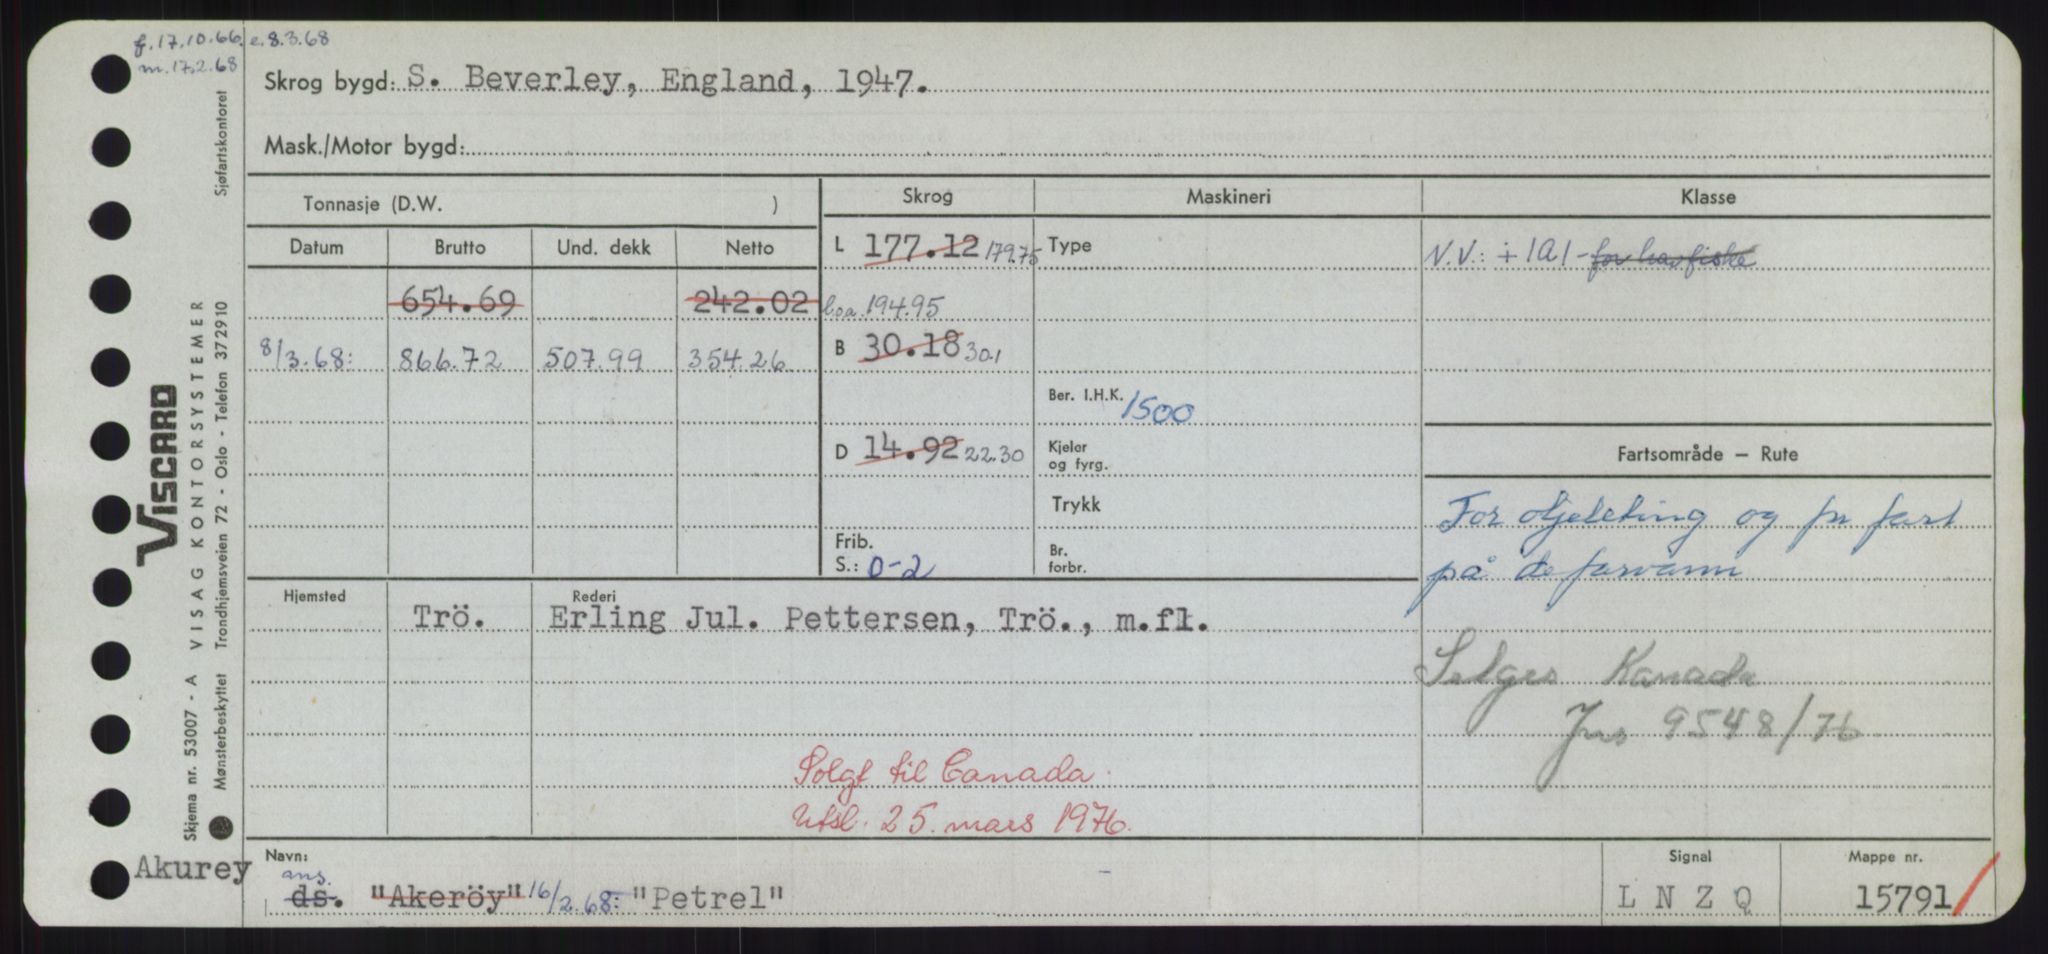 f. 17.10.66. e. 8.3.68
m. 17.2.68
Skrog bygd: S. Beverley, England, 1947.
Mask./Motor bygd:
Tonnasje (D.W. )
Skrog
Maskineri
Klasse
Datum Brutto Und. dekk Netto
654.69 242.02
8/3.68: 866.72 507.99 354.26
L 177.12 179.75
l.o.a. 194.95
B 30.18 30.1
D 14.92 22.30
Frib.
S.: 0-2
Type
Ber. I.H.K. 1500
Kjeler
og fyrg.
Trykk
Br.
forbr.
N.V.: + 1A1 - for havfiske
Fartsområde — Rute
For oljeleting og fart
på de farvann
Selges Kanada
Jns 9548/76
Hjemsted Rederi
Trö. Erling Jul. Pettersen, Trö., m.fl.
Solgt til Canada.
Utsl. 25. mars 1976.
Akurey
Navn:
ms.
ds. "Akeröy" 16/2.68: "Petrel"
Signal
L N Z Q
Mappe nr.
15791
VISCARD
VISAG KONTORSYSTEMER
Skjema nr. 53007 - A
Mønsterbeskyttet Trondhjemsveien 72 - Oslo - Telefon 372910 Sjøfartskontoret